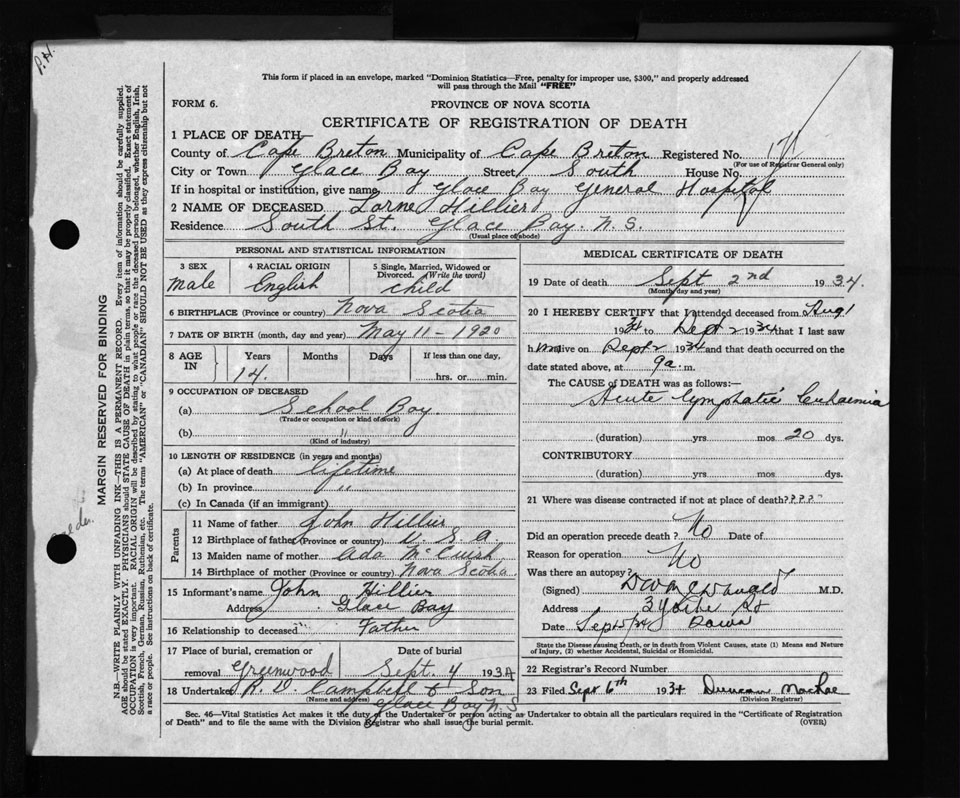 P.H.
This form if placed in an envelope, marked "Dominion Statistics—Free, penalty for improper use, $300," and properly addressed
will pass through the Mail "FREE"
FORM 6.
PROVINCE OF NOVA SCOTIA
CERTIFICATE OF REGISTRATION OF DEATH
1 PLACE OF DEATH—
County of Cape Breton Municipality of Cape Breton Registered No.
(For use of Registrar General only)
City or Town Glace Bay Street South House No.
If in hospital or institution, give name Glace Bay General Hospital
2 NAME OF DECEASED Lorne Hillier
Residence South St. Glace Bay. N.S.
(Usual place of abode)
PERSONAL AND STATISTICAL INFORMATION
3 SEX 4 RACIAL ORIGIN 5 Single, Married, Widowed or
Divorced. (Write the word)
male English child
6 BIRTHPLACE (Province or country) Nova Scotia
7 DATE OF BIRTH (month, day and year) May 11 - 1920
8 AGE IN Years Months Days If less than one day,
14. hrs. or min.
9 OCCUPATION OF DECEASED
(a) School Boy.
(Trade or occupation or kind of work)
(b) "
(Kind of industry)
10 LENGTH OF RESIDENCE (in years and months)
(a) At place of death lifetime
(b) In province "
(c) In Canada (if an immigrant)
Parents
11 Name of father John Hillier
12 Birthplace of father (Province or country) U.S.A.
13 Maiden name of mother Ada McCuish
14 Birthplace of mother (Province or country) Nova Scotia.
15 Informant's name John Hillier
Address Glace Bay
16 Relationship to deceased Father
17 Place of burial, cremation or Date of burial
removal Greenwood Sept. 4 1934
18 Undertaker R. D. Campbell & Son
(Name and address)
Glace Bay N.S
MEDICAL CERTIFICATE OF DEATH
19 Date of death Sept 2nd 1934.
(Month, day and year)
20 I HEREBY CERTIFY that I attended deceased from Aug 1
1934 to Sept 2 1934 that I last saw
him alive on Sept 2 1934 and that death occurred on the
date stated above, at 9 a. m.
The CAUSE OF DEATH was as follows:—
Acute Lymphatic Leuhaemia
(duration) yrs mos 20 dys.
CONTRIBUTORY
(duration) yrs mos dys.
21 Where was disease contracted if not at place of death? ? ? ?
Did an operation precede death? No Date of
Reason for operation No
Was there an autopsy?
(Signed) M.D.
Address
Date
State the Disease causing Death, or in death from Violent Causes, state (1) Means and Nature
of Injury, (2) whether Accidental, Suicidal or Homicidal.
22 Registrar's Record Number
23 Filed Sept 6th 1934 Duncan MacRae
(Division Registrar)
Sec. 46—Vital Statistics Act makes it the duty of the Undertaker or person acting as Undertaker to obtain all the particulars required in the "Certificate of Registration
of Death" and to file the same with the Division Registrar who shall issue the burial permit. (OVER)
MARGIN RESERVED FOR BINDING
N.B.—WRITE PLAINLY WITH UNFADING INK—THIS IS A PERMANENT RECORD. Every item of information should be carefully supplied.
AGE should be stated EXACTLY. PHYSICIANS should STATE CAUSE OF DEATH in plain terms, so that it may be properly classified. Exact statement of
OCCUPATION is very important. RACIAL ORIGIN will be described by stating to what people or race the deceased person belonged, whether English, Irish,
Scottish, French, German, Russian, Ruthenian, etc. The terms "AMERICAN" or "CANADIAN" SHOULD NOT BE USED as they express citizenship but not
a race or people. See instructions on back of certificate.